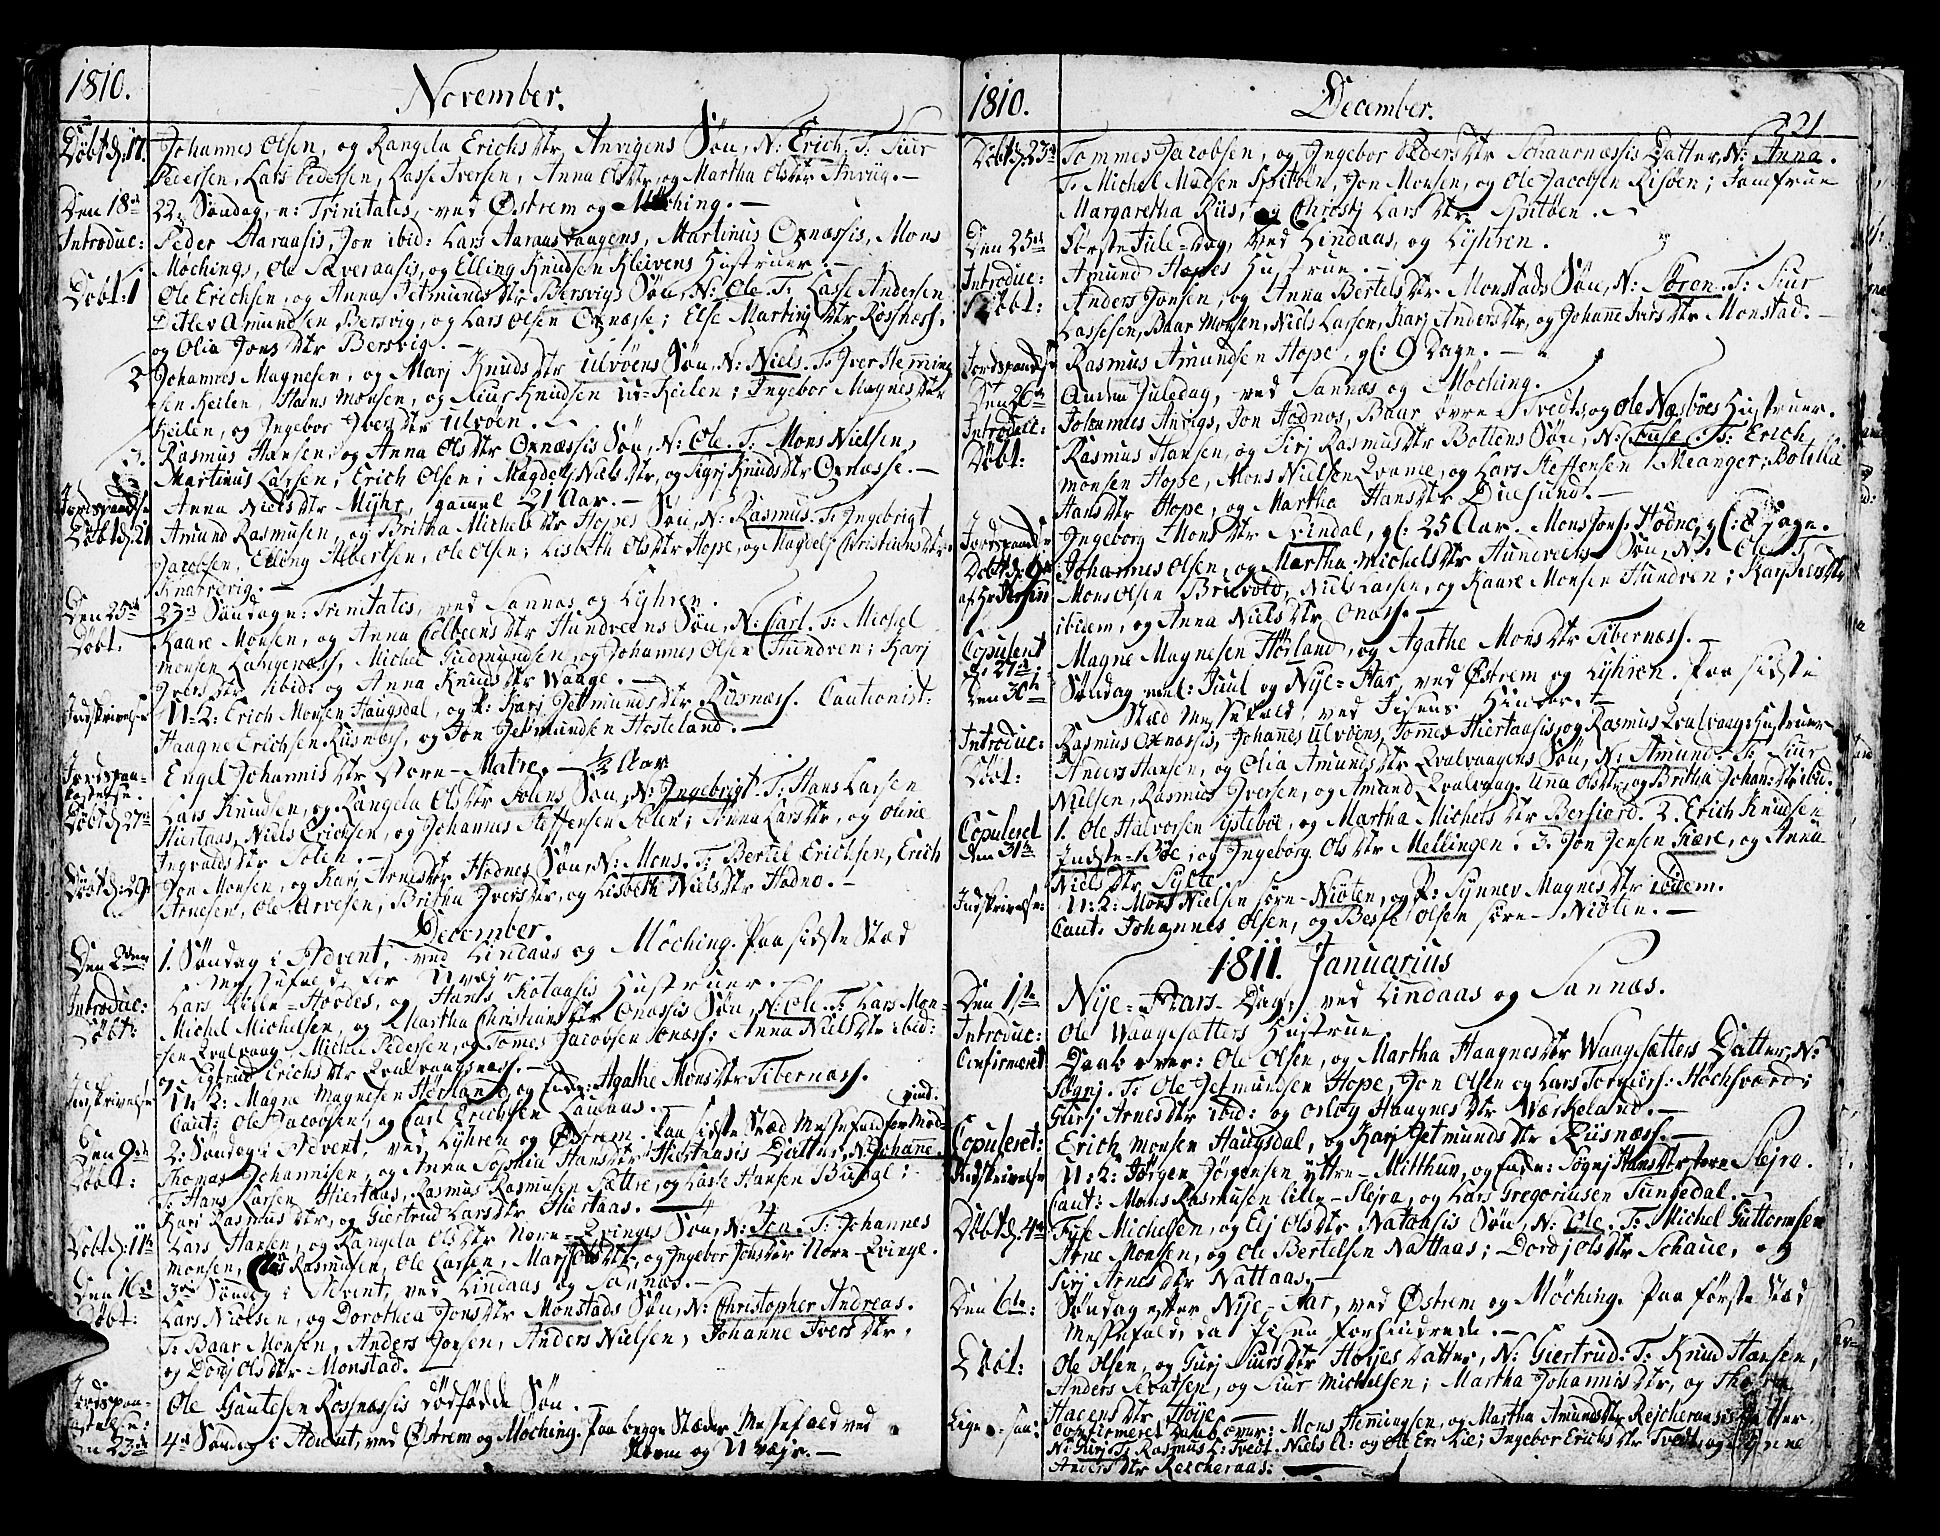 1810.
November.
Döbt d: 17. Johannes Olsen, og Rangela Erichsdtr Anvigens Søn, N: Erich. T: Siur
Pedersen, Lars Pedersen, Lasse Iversen, Anna Olsdtr, og Martha Olsdtr Anviig. -
Den 18de 22. Søndag, n: Trinitatis, ved Østrem og Möching. -
Introduc: Peder Aaraasis, Jon ibid: Lars Aaraasvaagens, Martinus Oxnæssis, Mons
Möchings, Ole Sæveraasis, og Elling Knudsen Kleivens Hustruer. -
Döbt: 1 Ole Erichsen, og Anna Jetmundsdtr Bersvigs Søn, N: Ole. T: Lasse Andersen
Ditlev Amundsen Bersvig, og Lars Olsen Oxnæsse; Else Martinj dtr Rossnæss,
og Olia Jonsdtr Bersvig. -
2 Johannes Magnesen, og Marj Knudsdtr Ulvöens Søn, N: Niels. T: Iver Heming
sen Keilen, Hans Monsen, og Siur Knudsen Keilen; Ingebor Magnesdtr
Keilen, og Ingebor Iversdtr Ulvöen. -
3. Rasmus Hansen, og Anna Olsdtr Oxnæssis Søn, N: Ole. T: Mons Nielsen,
Martinus Larsen, Erich Olsen; Magdelj Nielsdtr, og Sigrj Knudsdtr Oxnæsse. -
Jordspaadelse Anna Nielsdtr Myhr, gammel 21 Aar. -
Döbt d: 21 Amund Rasmusen, og Britha Michelsdtr Hopes Søn, N: Rasmus. T: Ingebrigt
Jacobsen, Elling Albertsen, Ole Olsen; Lisbeth Olsdtr Hope, og Magdelj Christiansdtr
Knarrevig. -
Den 25de 23de Søndag n: Trinitatis, ved Sannæs og Lyhren.
Döbt. Kaare Monsen, og Anna Colbeensdtr Hundveens Søn, N: Carl. T: Michel
Monsen Langenæss, Michel Gudmundsen, og Johannes Olsen Hundven; Karj
Iversdtr ibid: og Anna Knudsdtr Waage. -
Indskrivelse N: 2: Erich Monsen Haugsdal, og P: Karj Jetmundsdtr Risnæss. Cautionist:
Haagne Erichsen Risnæss, og Jon Jetmundsen Hosteland. -
Jordspaa-
kastelse. Engel Johannisdtr Store-Matre. - 1/2 Aar
Döbt d: 27de Lars Knudsen, og Rangela Olsdtr Solens Søn, N: Ingebrigt. T: Hans Larsen
Hiertaas, Niels Erichsen, og Johannes Steffensen Solen; Anna Larsdtr, og Oline
Ingvaldsdtr Solen. -
Döbt d: 29 Jon Monsen, og Karj Arnesdtr Hodnes Søn, N: Mons. T: Bertel Erichsen, Erich
Arnesen, Ole Arvesen, Britha Iversdtr, og Lisbeth Nielsdtr Hodno. -
December.
Den 2den 1. Søndag i Advent, ved Lindaas og Möching. Paa sidste Stæd
Messefald for Uvejr.
Introduc: Lars Lille-Hovdes, og Hans Kolaasis Hustruer.
Döbt: Michel Michelsen, og Martha Christiansdtr Onæssis Søn, N: Ole. T: Lars Mon-
sen Qvalvaag, Michel Pedersen, og Tomes Jacobsen Onæss; Anna Nielsdtr ibid:
og Sigtrud Erichsdtr Qvalvaagnæss. -
Indskrivelse N: 2: Magne Magnesen Hörland, og Enke: Agathe Monsdtr Tibernæss.
Caut: Ole Jacobsen, og Carl Erichsen Lindaas. -
Den 9de 2. Søndag i Advent, ved Lyhren og Østrem. Paa sidste Stæd Messefald for Mod vind.
Döbt: Thomas Johannisen, og Anna Sophia Hansdtr Hiertaasis Datter, N: Johanne.
T: Hans Larsen Hiertaas, Rasmus Rasmusen Sættre, og Lasse Hansen Bugge;
Karj Rasmusdtr, og Giertrud Larsdtr Hiertaas. -
Döbt d: 11te Lars Hansen, og Rangela Olsdtr Nore-Qvinges Søn, N: Jon. T: Johannes
Monsen, Rasmusen, Ole Larsen, Marj Olsdtr, og Ingebor Jonsdtr Nore-Qvinge.
Den 16de 3die Søndag i Advent, ved Lindaas og Sannæs. -
Döbt: Lars Nielsen, og Dorothea Jonsdtr Monstads Søn, N: Christopher Andreas.
T: Baar Monsen, Anders Jonsen, Anders Nielsen, Johanne Iversdtr,
og Dordj Olsdtr Monstad. -
Jordspaa-
kastelse: Ole Gautesen Rossnæssis dödfödde Sön.
Den 23de 4de Søndag i Advent, ved Østrem og Möching. Paa begge Stæder Messefald ved
Storm og Uvejr. -
1810.
December.
321
Döbt d: 23de Tommes Jacobsen, og Ingebor Pedersdtr Schaurnæssis Datter, N: Anna.
T: Michel Madsen Spitöen, Jon Monsen, og Ole Jacobsen Risöen; Jomfrue
Margaretha Riis, og Christj Larsdtr Spitöen.
Den 25de Förste Jule-Dag, ved Lindaas, og Lyhren.
Introduc: Amund Hopes Hustrue. -
Döbt: Anders Jonsen, og Anna Bertelsdtr Monstads Søn, N: Sören. T: Siur
Lassesen, Baar Monsen, Niels Larsen, Karj Andersdtr, og Johanne Iversdtr Monstad. -
Jordspaadelse Rasmus Amundsen Hope, gl: 9 Dage. -
Den 26de Anden Juledag, ved Sannæs og Möching.
Introduc: Johannes Anvigs, Jon Hodnos, Baar övre-Tvedts, og Ole Næsböes Hustruer.
Döbt: Rasmus Hansen, og Sirj Rasmusdtr Bottens Søn, N: . T: Erich
Monsen Hope, Mons Nielsen Qvame, og Lars Steffensen Meanger; Botilla
Hansdtr Hope, og Martha Hansdtr Duesund. -
Jordspaad: Ingeborg Monsdtr Svindal, gl: 25 Aar. Mons Jons: Hodno, gl: 8 Dage.
Döbt d: 9de Johannes Olsen, og Martha Michelsdtr Hundveens Søn, N: Ole. T:
af Hr Mons Olsen Brevold, Niels Larsen, og Kaare Monsen Hundven; Karj Iversdtr
ibidem, og Anna Nielsdtr Onæss. -
Copuleret
d: 27de: Magne Magnesen Hörland, og Agathe Monsdtr Tibernæss. -
Den 30te Søndag mel: Juul og Nye-Aar, ved Østrem og Lyhren. Paa sidste
Stæd Messefald, ved Jisens Hinder. -
Introduc: Rasmus Oxnæssis, Johannes Ulvöens, Tomes Hiertaasis, og Rasmus Qvalvaags Hustruer
Döbt: Anders Hansen, og Olia Amundsdtr Qvalvaagens Søn, N: Amund. T: Siur
Nielsen, Rasmus Iversen, og Amund Qvalvaag. Anna Olsdtr, og Britha Johan: dtr ibid.
Copuleret
den 31te 1. Ole Halvorsen Systeböe, og Martha Michelsdtr Berfiord. 2. Erich Knudsen
Indste-Böe, og Ingeborg Olsdtr Mellingen. 3. Jon Jensen Kiære, og Anna
Nielsdtr Sylte.
Indskrivelse: N: 2: Mons Nielsen söre-Niöten, og P: Synnev Magnesdtr ibidem.
Caut: Johannes Olsen, og Besse Olsen söre-Niöten. -
1811. Januarius
Den 1ste Nye-Aars-Dag, ved Lindaas og Sannæs.
Introduc: Ole Waagesætters Hustrue.
Confirmeret Daab over: Ole Olsen, og Martha Haagnesdtr Waagesætters Datter, N:
Sögnj. T: Ole Jetmundsen Hope, Jon Olsen og Lars Torgiers: Höchsværd;
Gurj Arnesdtr ibid: og Oslög Haagnesdtr Værkeland. -
Copuleret: Erich Monsen Haugsdal, og Karj Jetmundsdtr Riisnæss. -
Indskrivelse N: 2: Jörgen Jörgensen yttre-Mitthun, og Enke: Sögnj Hansdtr store Slejre.
Caut: Mons Rasmusen lille-Slejra, og Lars Gregoriusen Tungedal.
Döbt d: 4de Fyse Michelsen, og Eij Olsdtr Nataasis Søn, N: Ole. T: Michel Guttormsen
Arne Monsen, og Ole Bertelsen Nattaas; Dordj Olsdtr Schaue, og
Sirj Arnesdtr Nattaas. -
Den 6te: Søndag efter Nye-Aar, ved Østrem og Möching. Paa förste Stæd
Messefald, da Jisen forhindrede. -
Döbt: Ole Olsen, og Gurj Siursdtr Höyes Datter, N: Giertrud. T: Knud Hansen,
Anders Sevatsen, og Siur Michelsen; Martha Johannisdtr, og
Haagensdtr Höye. -
Lige saa: Confirmeret Daab over: Mons Hemingsen, og Martha Amundsdtr Rejcheraasis Datter,
N: Gurj. T: Rasmus L: Tvedt, Niels A: og Ole Er: Lie; Ingebor Erichsdtr Tvedt, og Synneve
Andersdtr Rejcheraas. -